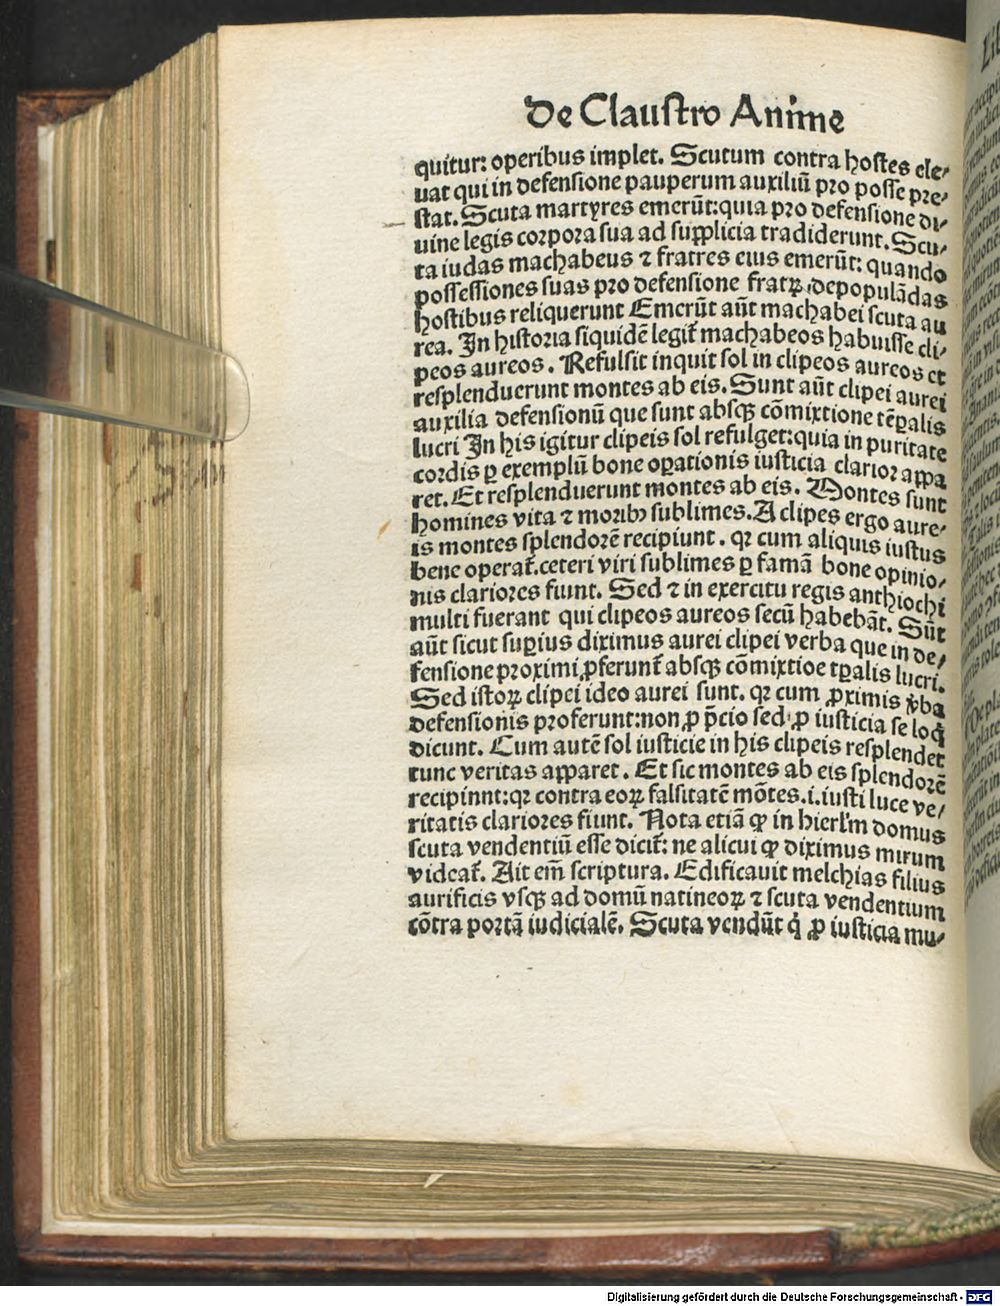 De Claustro Anime
quitur: operibus implet. Scutum contra hostes ele⸗
uat qui in defensione pauperum auxiliū pro posse pre⸗
stat. Scuta martyres emerūt: quia pro defensione di⸗
uine legis corpora sua ad supplicia tradiderunt. Scu⸗
ta iudas machabeus ⁊ fratres eius emerūt: quando
possessiones suas pro defensione fratꝝ depopulādas
hostibus reliquerunt Emerūt aūt machabei scuta au
rea. In historia siquidē legit᷑ machabeos habuisse cli⸗
peos aureos. Refulsit inquit sol in clipeos aureos et
resplenduerunt montes ab eis. Sunt aūt clipei aurei
auxilia defensionū que sunt absqꝫ cōmixtione tēꝑalis
lucri In his igitur clipeis sol refulget: quia in puritate
cordis ꝑ exemplū bone oꝑationis iusticia clarior appa
ret. Et resplenduerunt montes ab eis. Montes sunt
homines vita ⁊ moribꝫ sublimes. A clipeis ergo aure⸗
is montes splendorē recipiunt. qꝛ cum aliquis iustus
bene operat᷑. ceteri viri sublimes ꝑ famā bone opinio⸗
nis clariores fiunt. Sed ⁊ in exercitu regis anthiochi
multi fuerant qui clipeos aureos secū habebāt. Sūt
aūt sicut suꝑius diximus aurei clipei verba que in de⸗
fensione proximi ꝓferunt᷑ absqꝫ cōmixtioe tꝑalis lucri.
Sed istoꝝ clipei ideo aurei sunt. qꝛ cum ꝓximis v̄ba
defensionis proferunt: non ꝓ p̄cio sed ꝓ iusticia se loq̄
dicunt. Cum autē sol iusticie in his clipeis resplendet
tunc veritas apparet. Et sic montes ab eis splendorē
recipinnt: qꝛ contra eoꝝ falsitatē mōtes .i. iusti luce ve⸗
ritatis clariores fiunt. Nota etiā ꝙ in hierl'm domus
scuta vendentiū esse dicit᷑: ne alicui ꝙ diximus mirum
videat᷑. Ait em̄ scriptura. Edificauit melchias filius
aurificis vsqꝫ ad domū natineoꝝ ⁊ scuta vendentium
cōtra portā iudicialē. Scuta vendūt q̇ ꝓ iusticia mu⸗
Digitalisierung gefördert durch die Deutsche Forschungsgemeinschaft - DFG